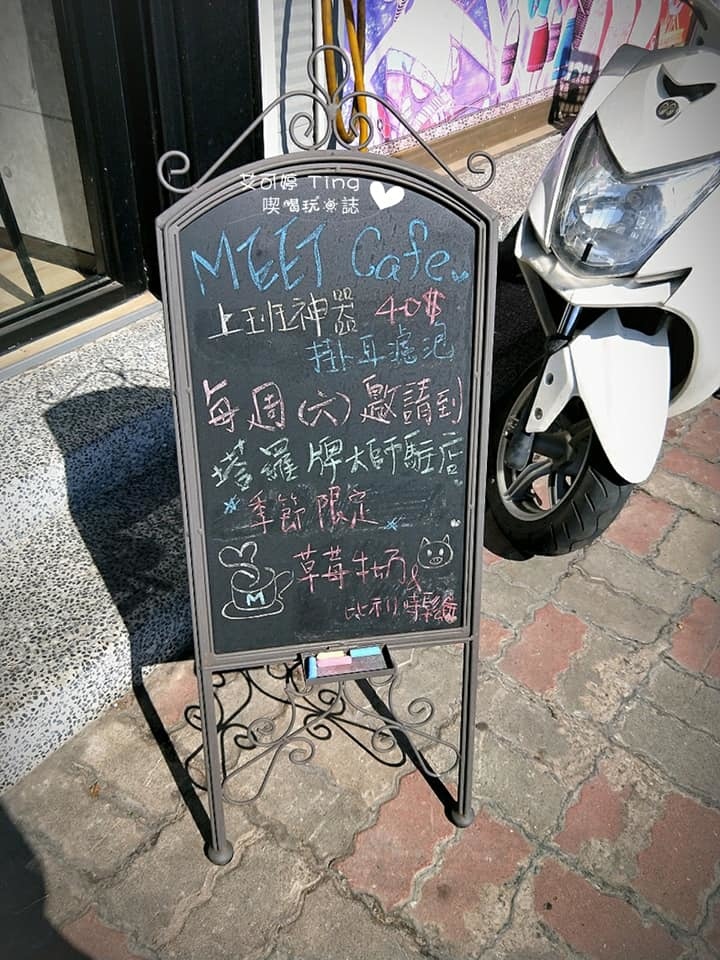 艾可婷 Ting
喫喝玩樂誌
MEET Cafe
上班神器 40$
掛耳濾泡
每週(六)邀請到
塔羅牌大師駐店
季節限定
草莓牛奶&
比利時鬆餅
M